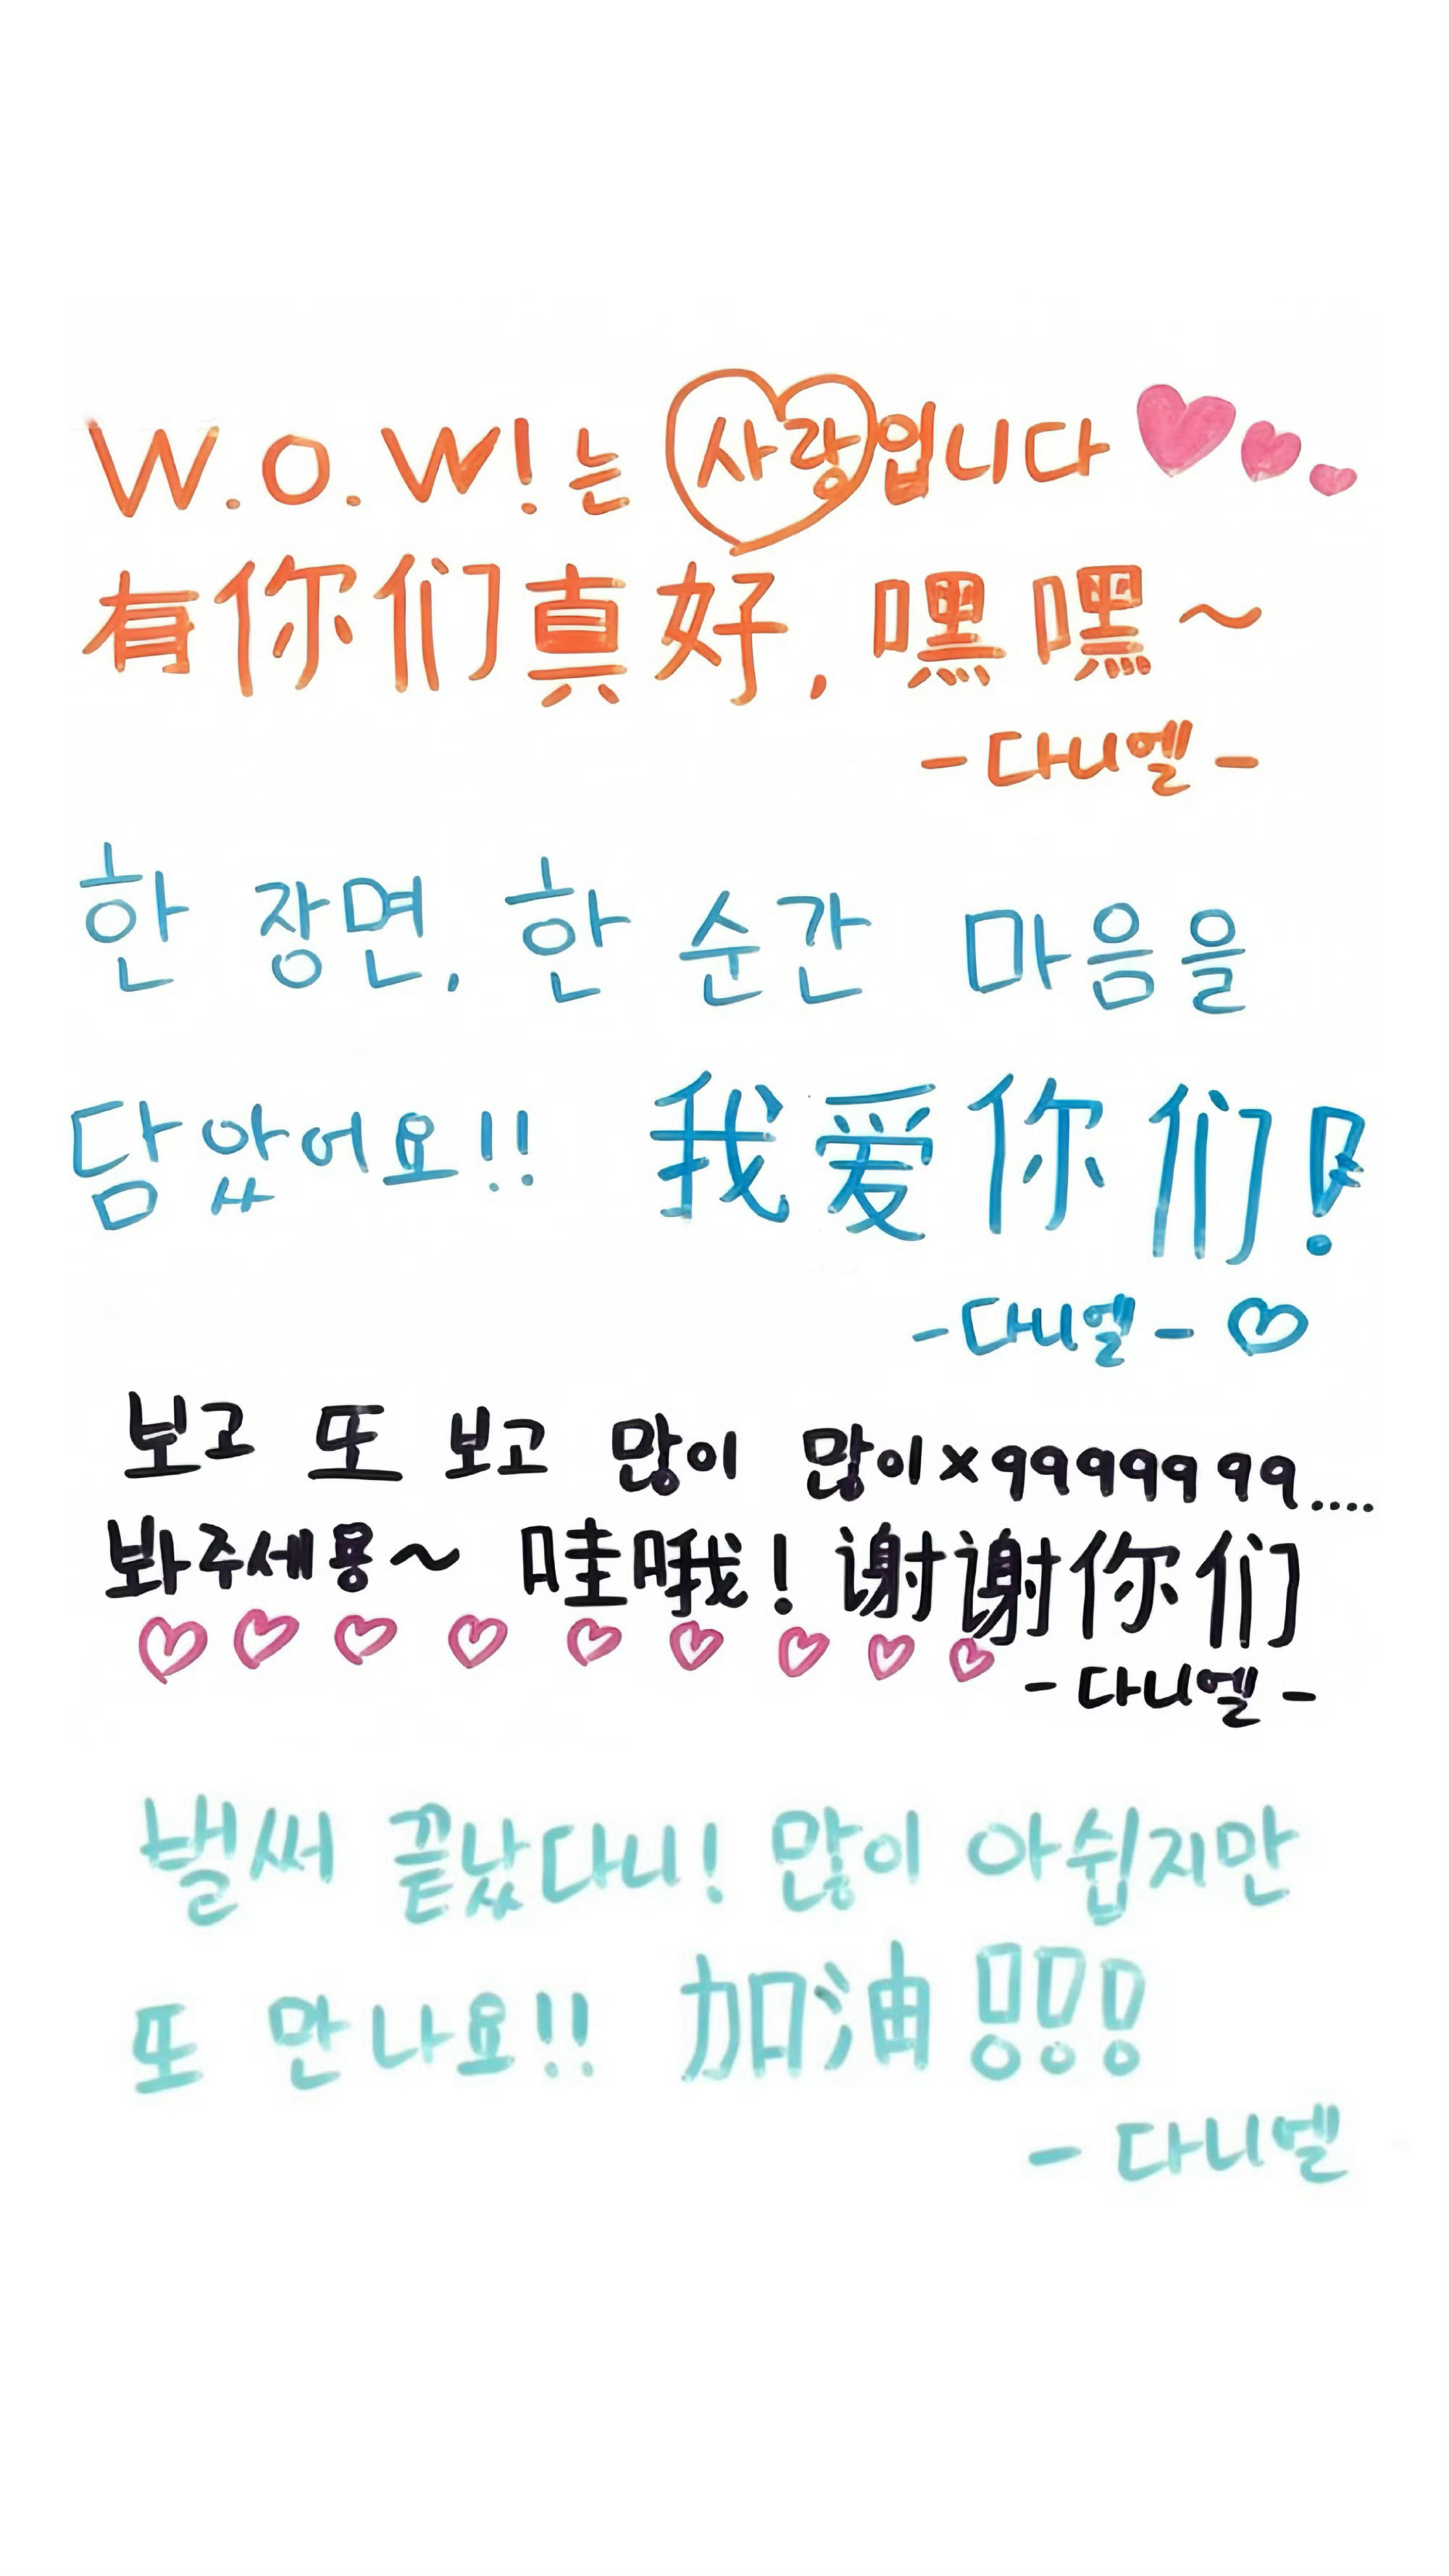 W.O.W!는 사랑입니다
有你们真好,嘿嘿~
-다니엘-
한 장면, 한 순간 마음을
담았어요!! 我爱你们!
-다니엘-
보고 또 보고 많이 많이×9999999....
봐주세용~ 哇哦!谢谢你们
-다니엘-
벌써 끝났다니! 많이 아쉽지만
또 만나요!! 加油!!!
-다니엘